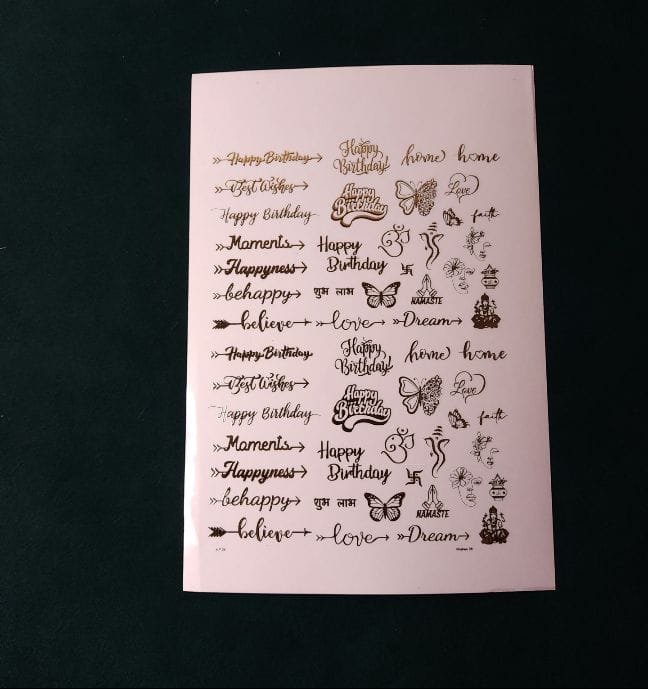 Happy Birthday Happy Birthday! home home
Best Wishes Happy Birthday Love
Happy Birthday faith
Moments Happy Birthday ॐ
Happyness
behappy शुभ लाभ NAMASTE
believe love Dream
Happy Birthday Happy Birthday! home home
Best Wishes Happy Birthday Love
Happy Birthday faith
Moments Happy Birthday ॐ
Happyness
behappy शुभ लाभ NAMASTE
believe love Dream